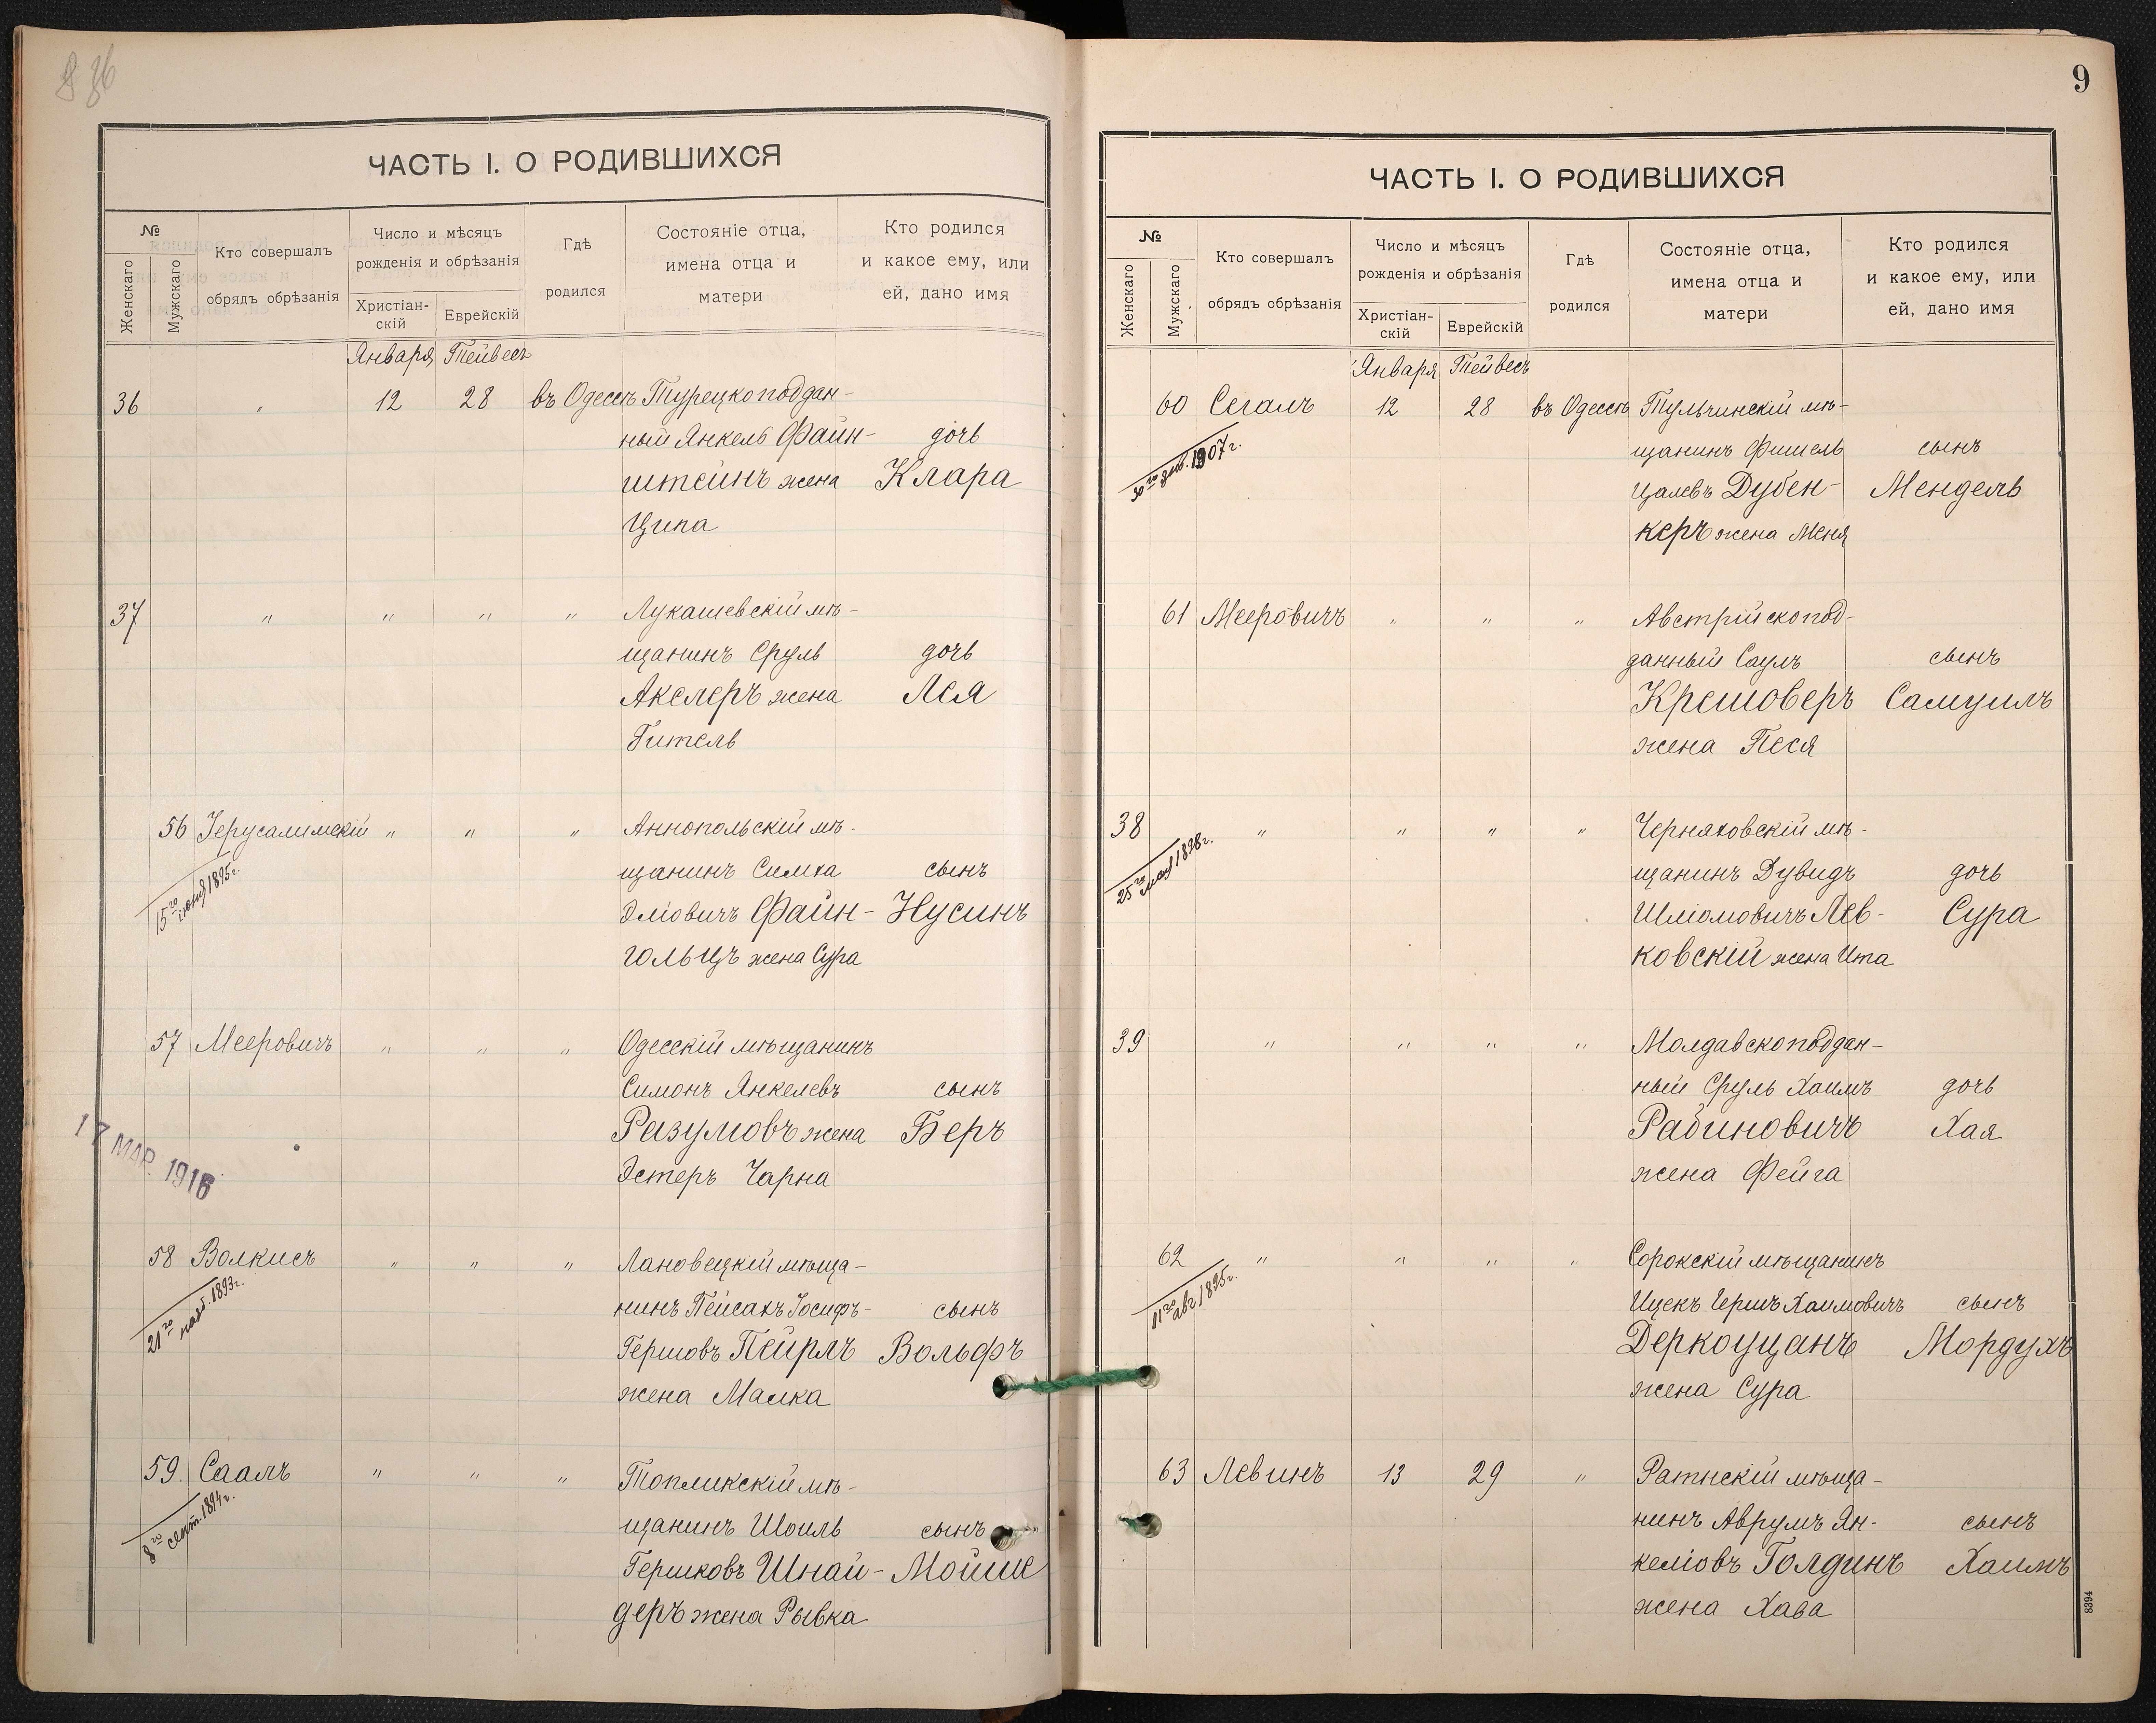 ЧАСТЬ I. О РОДИВШИХСЯ
№
Женскаго
Мужскаго
Кто совершалъ
обрядъ обрѣзанія
Число и мѣсяцъ
рожденія и обрѣзанія
Христіан-
скій
Еврейскій
Гдѣ
родился
Состояніе отца,
имена отца и
матери
Кто родился
и какое ему, или
ей, дано имя
Января Тейвесъ
36 " 12 28 въ Одессѣ Турецкоподдан-
ный Янкель Файн- дочь
штейнъ жена Клара
Ципа
37 " " " " Лукашевскій мѣ-
щанинъ Сруль дочь
Акслеръ жена Лея
Гитель
56 Іерусалимскій " " " Аннопольскій мѣ-
15го іюня 1895г.
щанинъ Симха сынъ
Эліовичъ Файн- Нусинъ
гольцъ жена Сура
57 Мееровичъ " " " Одесскій мѣщанинъ
Симонъ Янкелевъ сынъ
Разумовъ жена Беръ
Эстеръ Чарна
17 МАР. 1916
58 Волкисъ " " " Лановецкій мѣща-
21го 1893г.
нинъ Пейсахъ Іосифъ- сынъ
Гершовъ Пейрлъ Вольфъ
жена Малка
59. Сааль " " " Топликскій мѣ-
8го сент. 1894г.
щанинъ Шоиль сынъ
Гершковъ Шнай- Мойше
деръ жена Рывка
9
ЧАСТЬ I. О РОДИВШИХСЯ
№
Женскаго
Мужскаго
Кто совершалъ
обрядъ обрѣзанія
Число и мѣсяцъ
рожденія и обрѣзанія
Христіан-
скій
Еврейскій
Гдѣ
родился
Состояніе отца,
имена отца и
матери
Кто родился
и какое ему, или
ей, дано имя
Января Тейвесъ
60 Сегалъ 12 28 въ Одессѣ Тульчинскій мѣ-
1907г.
щанинъ Фишель сынъ
Цалевъ Дубен- Мендель
керъ жена Меня
61 Мееровичъ " " " Австрійскопод-
данный Саулъ сынъ
Крешоверъ Самуилъ
жена Песя
38 " " " " Черняховскій мѣ-
25го мая 1898г.
щанинъ Дувидъ дочь
Шліомовичъ Лев- Сура
ковскій жена Ита
39 " " " " Молдавскоподдан-
ный Сруль Хаимъ дочь
Рабиновичъ Хая
жена Фейга
62 " " " " Сорокскій мѣщанинъ
11го авг. 1895г.
Ицекъ Гершъ Хаимовичъ сынъ
Деркоуцанъ Мордухъ
жена Сура
63 Левинъ 13 29 " Ратнскій мѣща-
нинъ Аврумъ Ян- сынъ
келіовъ Голдинъ Хаимъ
жена Хава
8394